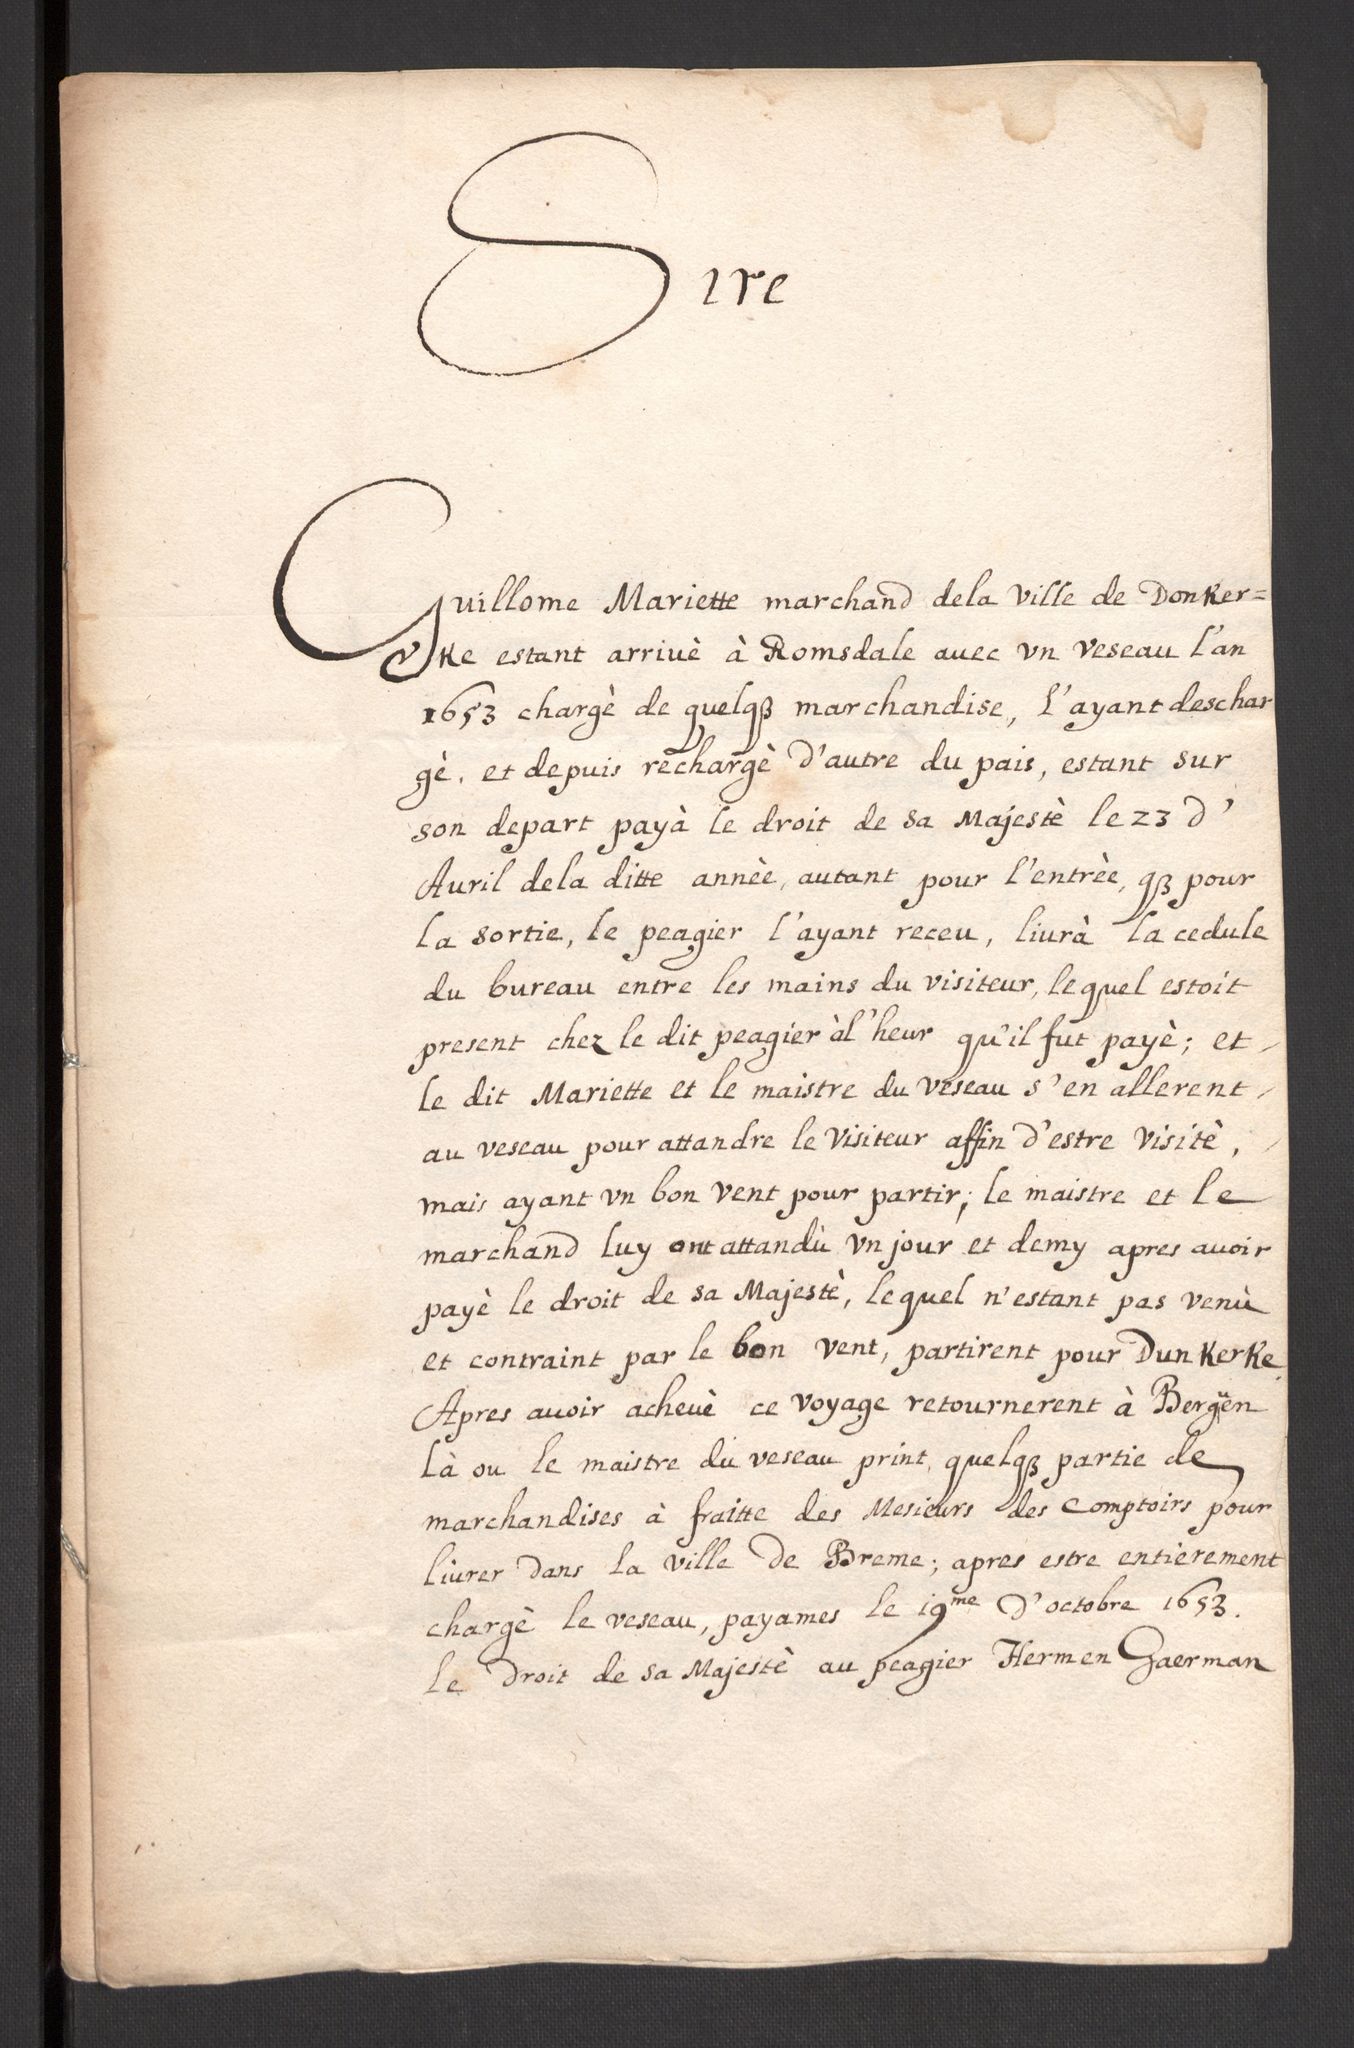 Sire
Guillome Mariette marchand dela ville de Donker=
ke estant arriuè à Romsdale auec vn veseau l'an
1653 chargè de quelqꝫ marchandise, l'ayant deschar
gè, et depuis rechargè d'autre du pais, estant sur
son depart payà le droit de sa Majestè le 23 d'
Auril dela ditte annèe, autant pour l'entrèe, qꝫ pour
la sortie, le peagier l'ayant receu, liurà la cedule
du bureau entre les mains du visiteur, lequel estoit
present chez le dit peagier àl'heur qu'il fut payè; et
le dit Mariette et le maistre du veseau s'en allerent
au veseau pour attandre le visiteur affin d'estre visitè,
mais ayant vn bon vent pour partir; le maistre et le
marchand luy ont attandù vn jour et demy apres auoir
payè le droit de sa Majestè, lequel n'estant pas venù
et contraint par le bon vent, partirent pour Dunkerke.
Apres auoir acheuè ce voyage retournerent à Bergën
là ou le maistre du veseau print, quelqꝫ partie de
marchandises à fraitte des Mesieurs des Comptoirs pour
liurer dans la ville de Breme; apres estre entierement
chargè le veseau, payames le 19me d'octobre 1653.
le droit de sa Majestè au peagier Hermen Gaerman